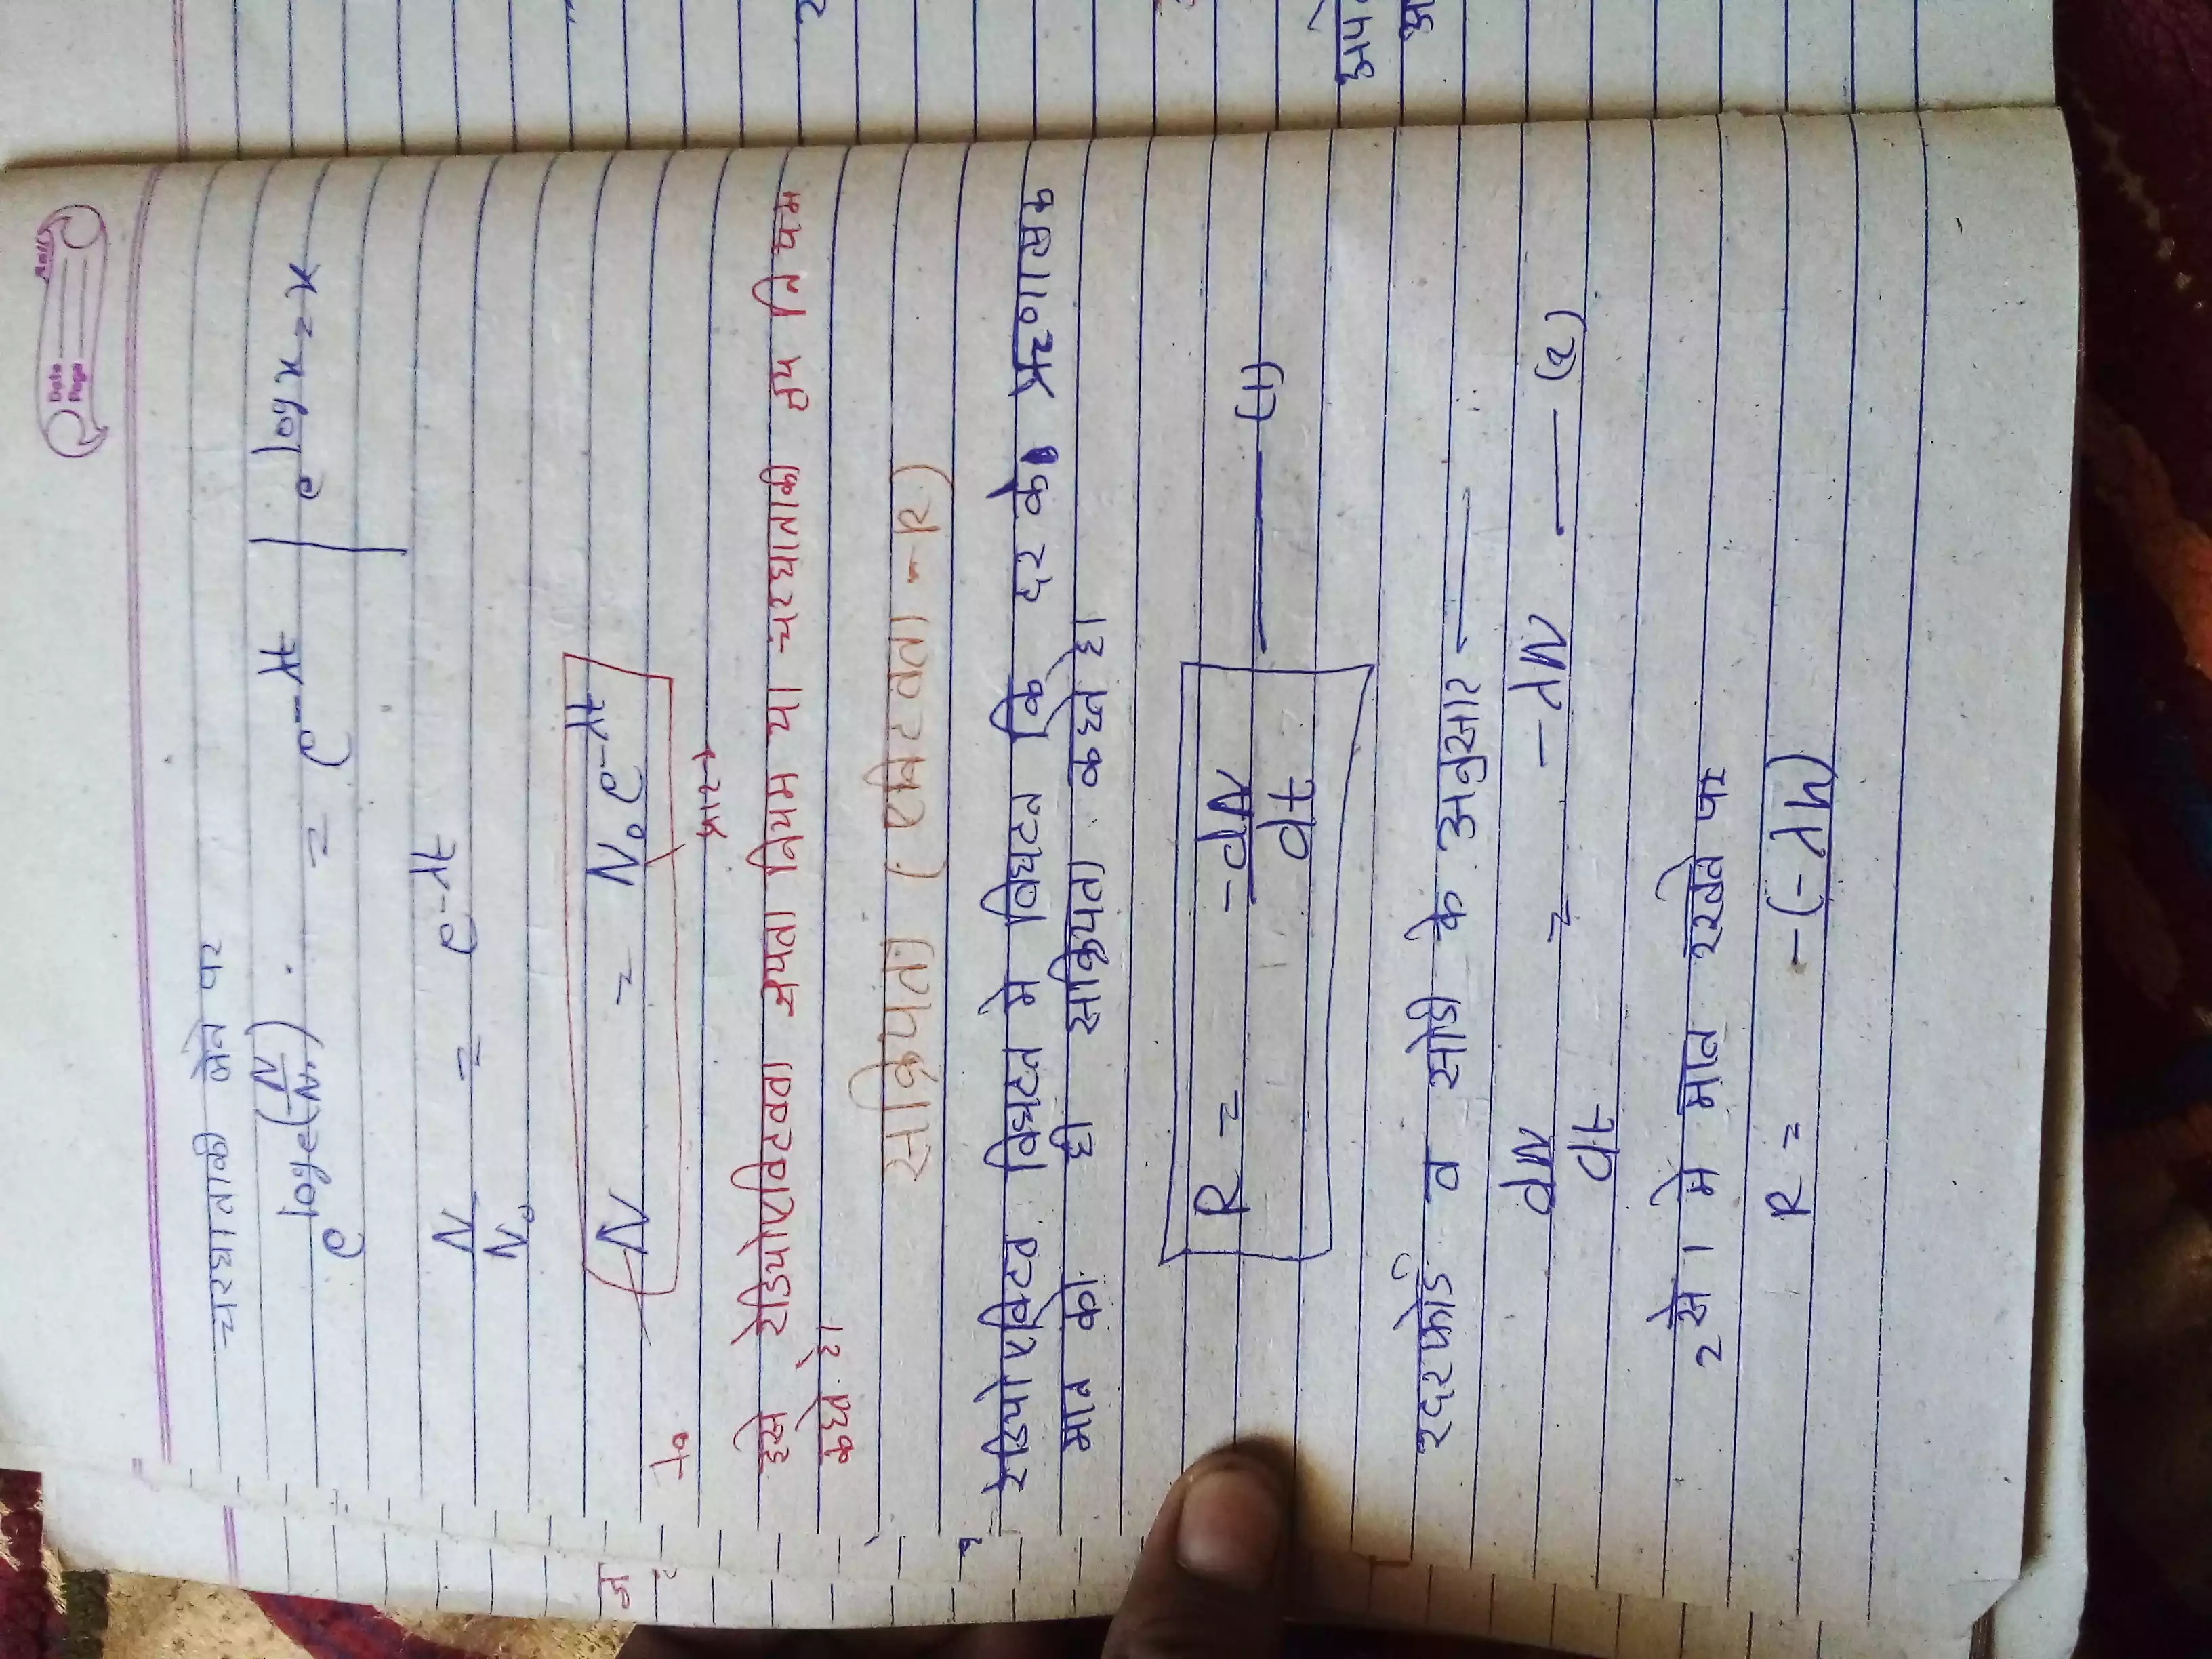 Date
Page
चरघाताकी लेने पर
e^loge(N/N₀) = e^-λt | e^log x = x
N/N₀ = e^-λt
N = N₀e^-λt
इसे रेडियोएक्टिवता क्षयता नियम या चरघाताकी क्षय नियम
कहते है।
सक्रियता (एक्टिवता -R)
रेडियोएक्टिव विघटन मे विघटन कि दर के ऋणात्मक
मान को ही सक्रियता कहते है।
R = -dN/dt —— (1)
रदरफोर्ड व सोडी के अनुसार ——
dN/dt = -λN —— (2)
2 से 1 मे मान रखने पर
R = -(-λN)